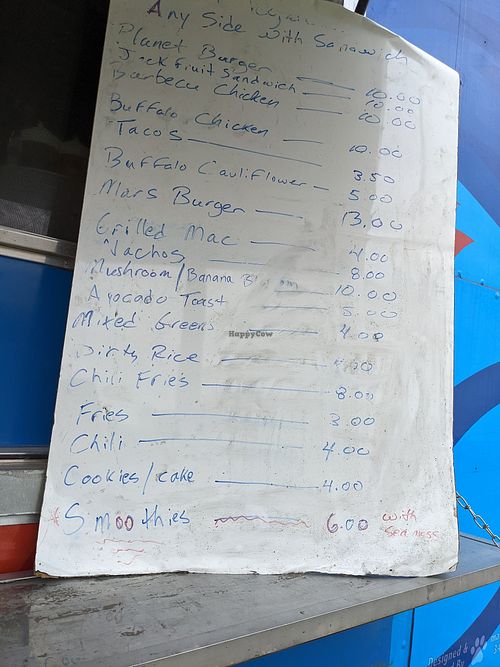 Any Side with Sanawich
Planet Burger — 10.00
Jackfruit Sandwich — 10.00
Barbecue Chicken — 10.00
Buffalo Chicken — 10.00
Tacos — 3.50
Buffalo Cauliflower — 5.00
Mars Burger — 13.00
Grilled Mac — 4.00
Nachos — 8.00
Mushroom/Banana — 10.00
Avocado Toast — 5.00
Mixed Greens — 4.00
HappyCow
Dirty Rice —
Chili Fries — 8.00
Fries — 3.00
Chili — 4.00
Cookies/cake — 4.00
*Smoothies — 6.00 with Sea moss
Designed &
By